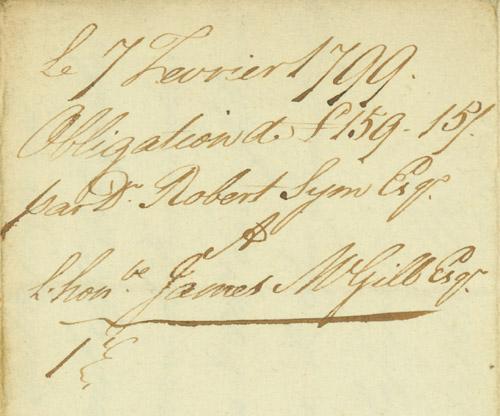 Le 7 Fevrier 1799.
Obligation de £159 - 15/.
par Dr. Robert Sym Esqr.
A
l'honble James McGill Esqr.
1re